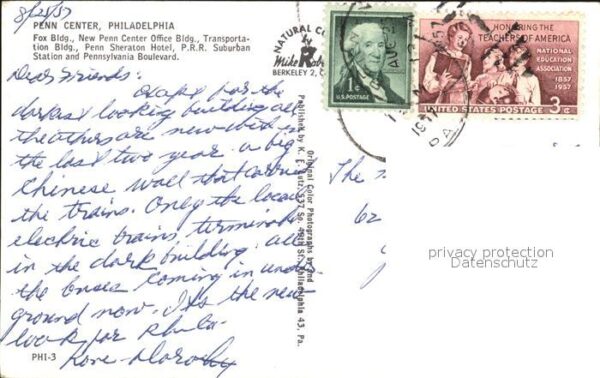 8/25/57
PENN CENTER, PHILADELPHIA
Fox Bldg., New Penn Center Office Bldg., Transporta-
tion Bldg., Penn Sheraton Hotel, P.R.R. Suburban
Station and Pennsylvania Boulevard.
Dear Friends:
for the
darkest looking building all
the others are new with in
the last two year. a big
Chinese wall that carried
the trains. Only the local
electric trains, terminate
in the dark building. all
the ones coming in under
ground now. It's the new
look for Phila.
Love Dorothy
PHI-3
Original Color Photographs by and
Published by K. E. Lutz, 537 So. 48th St., Philadelphia 43, Pa.
NATURAL CO
Mike Rob
BERKELEY 2, C
1¢
U.S. POSTAGE
HONORING THE
TEACHERS OF AMERICA
NATIONAL
EDUCATION
ASSOCIATION
1857
1957
UNITED STATES POSTAGE 3¢
The
62
privacy protection
Datenschutz